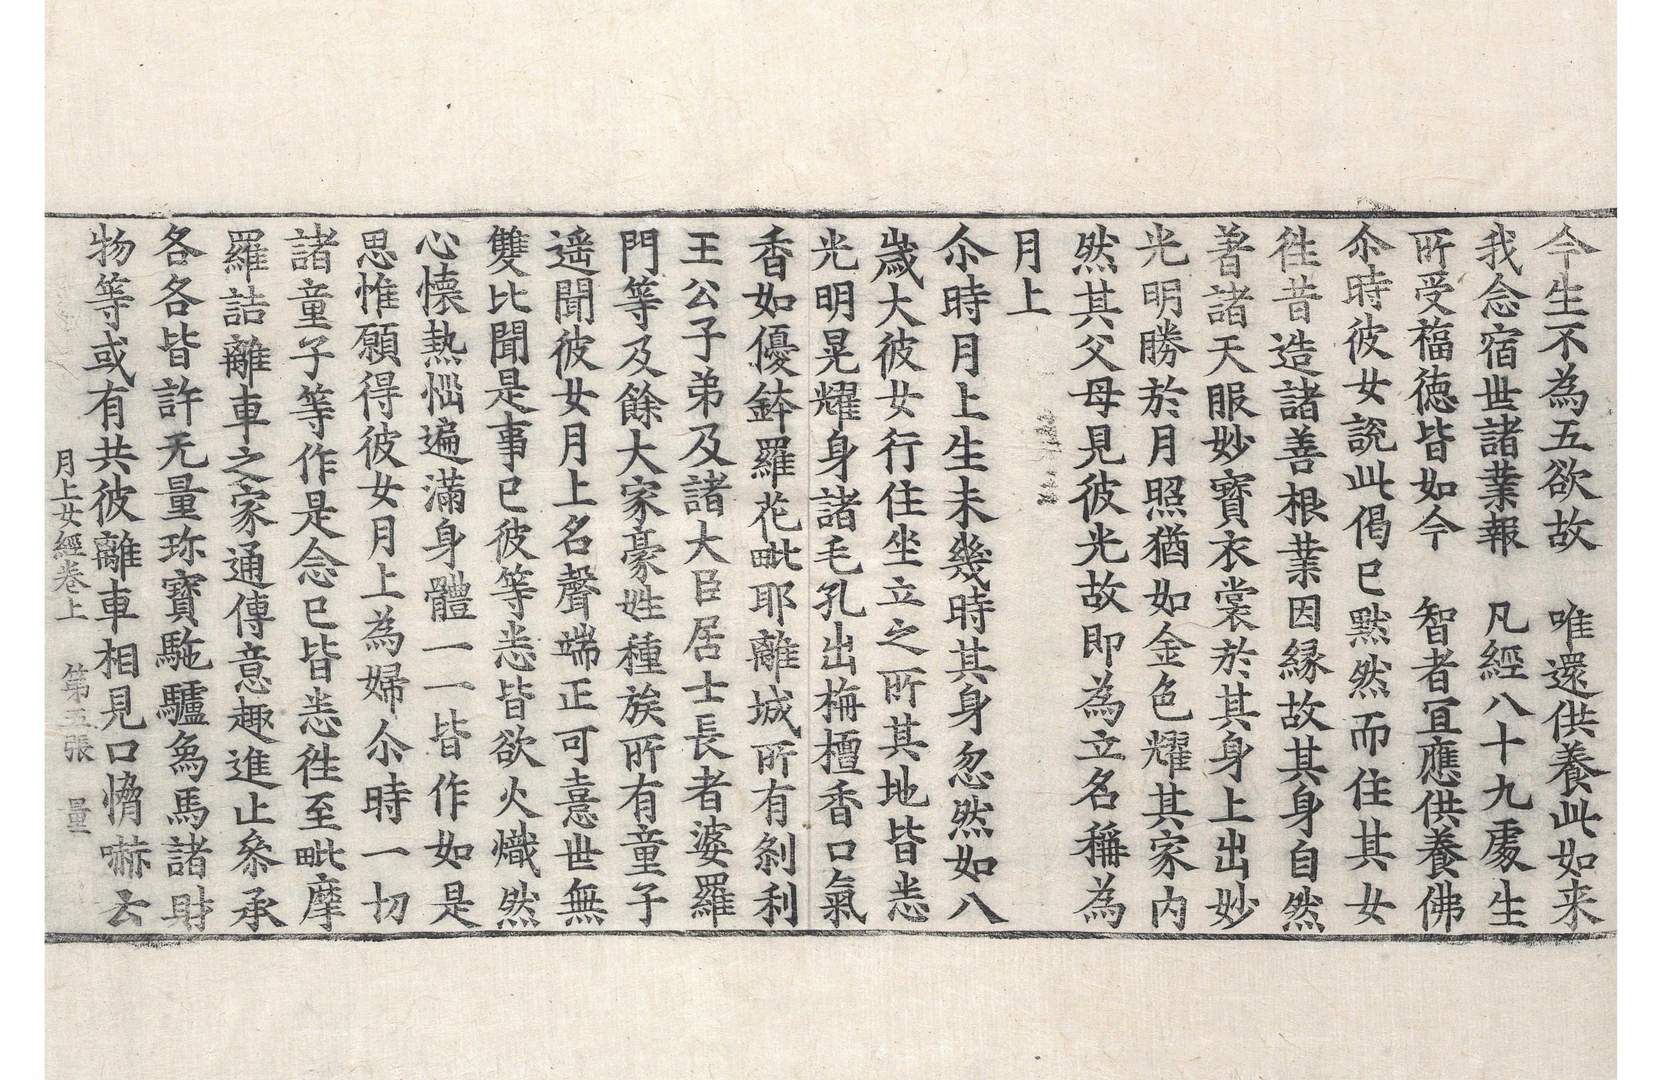 今生不為五欲故　唯還供養此如来
我念宿世諸業報　凡經八十九處生
所受福德皆如今　智者宜應供養佛
尒時彼女說此偈已默然而住其女
徃昔造諸善根業因緣故其身自然
著諸天服妙寶衣裳於其身上出妙
光明勝於月照猶如金色耀其家内
然其父母見彼光故即為立名稱為
月上
尒時月上生未幾時其身忽然如八
歲大彼女行住坐立之所其地皆悉
光明晃耀身諸毛孔出栴檀香口氣
香如優鉢羅花毗耶離城所有剎利
王公子弟及諸大臣居士長者婆羅
門等及餘大家豪姓種族所有童子
遥聞彼女月上名聲端正可憙世無
雙比聞是事已彼等悉皆欲火熾然
心懷熱惱遍滿身體一一皆作如是
思惟願得彼女月上為婦尒時一切
諸童子等作是念已皆悉徃至毗摩
羅詰離車之家通傳意趣進止叅承
各各皆許无量珎寶駞驢象馬諸財
物等或有共彼離車相見口脅嚇云
月上女經卷上　第五張　量